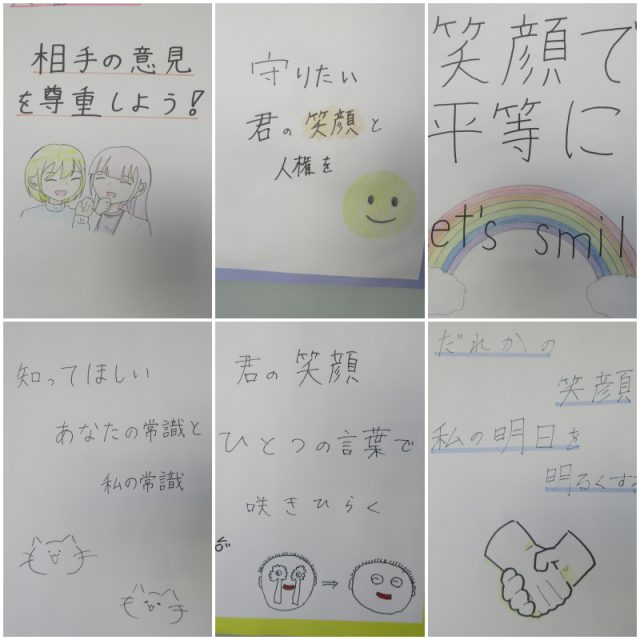 相手の意見
を尊重しよう!
守りたい
君の笑顔と
人権を
笑顔で
平等に
et's smil
知ってほしい
あなたの常識と
私の常識
君の笑顔
ひとつの言葉で
咲きひらく
だれかの
笑顔
私の明日を
明るくする